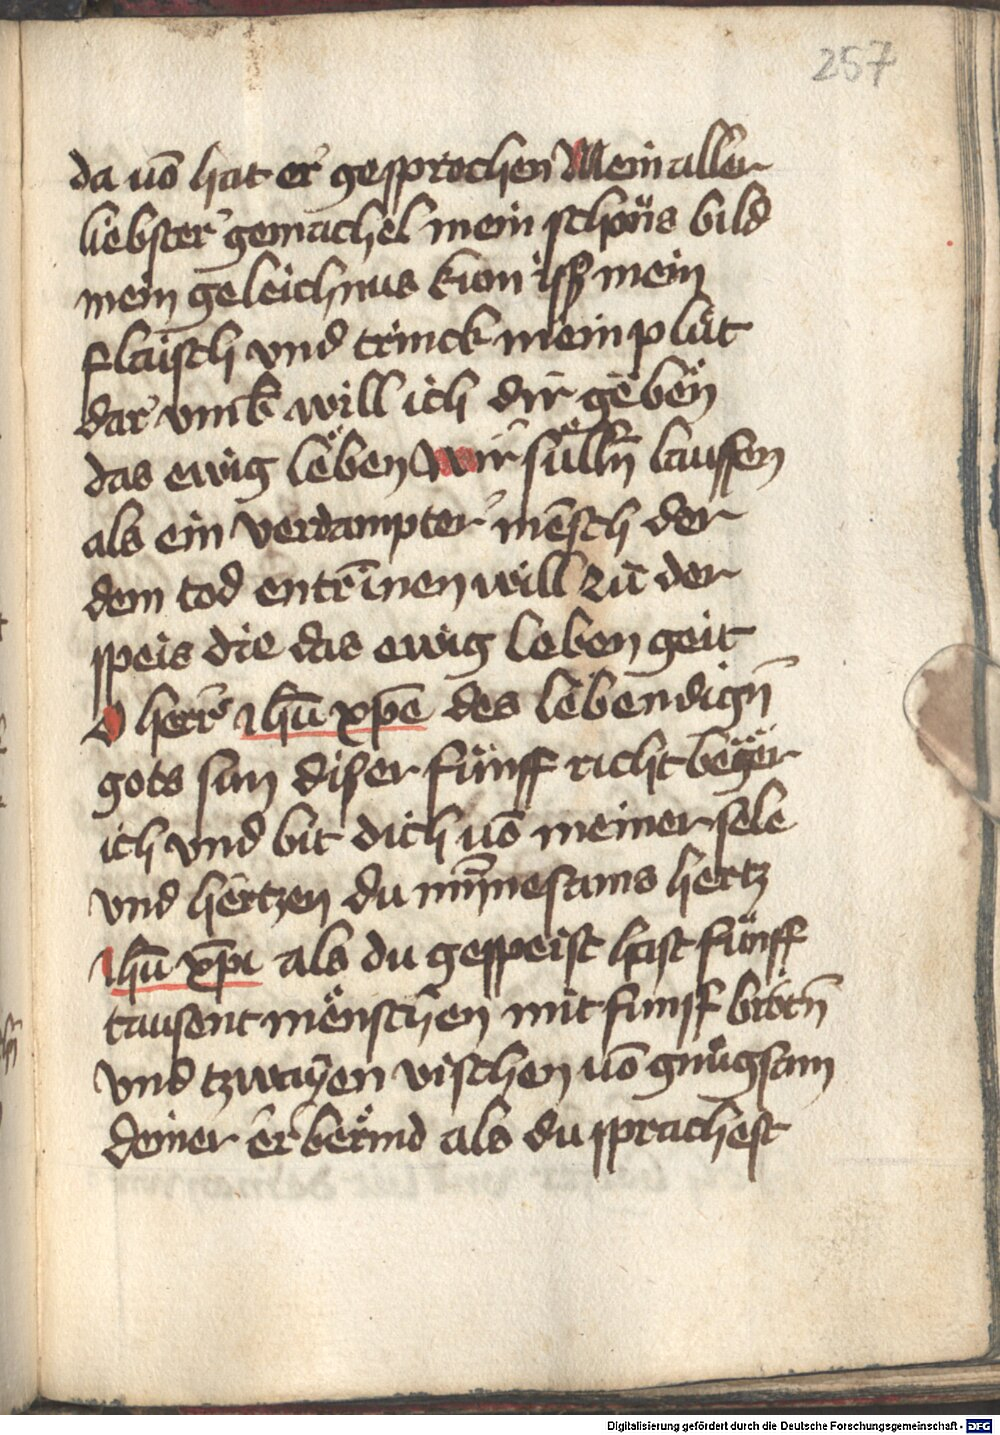 257
da uō hat er gesprochen Mein aller
liebster gemachel mein schöns bild
mein geleichnus kum iss mein
flaisch vnd trinck mein plůt
dar vmb will ich dir gebën
das ewig lëben Wir süllñ lauffen
als ein verdampter mēsch der
dem tod entrīnen will zů der
speis die das ewig leben geit
O herr̄ ihū xp̄e des lebendign̄
gots sun diser fünff richt beger
ich vnd bit dich uō meiner sele
vnd hertzen du mīnesams hertz
ihū xp̄i als du gespeist hast fünff
tausent mënschen mit funff brotn̄
vnd tzwaÿen vischen uō gnůgsam
deiner erbermd als du sprachest
Digitalisierung gefördert durch die Deutsche Forschungsgemeinschaft - DFG